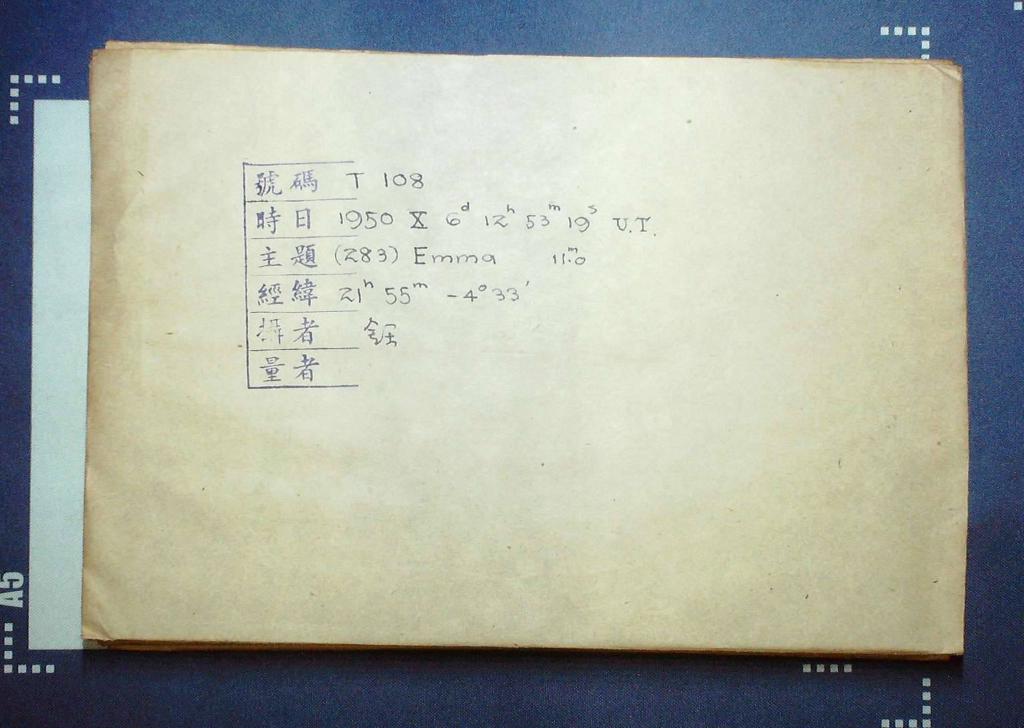 號碼 T 108
時日 1950 X 6ᵈ 12ʰ 53ᵐ 19ˢ U.T.
主題 (283) Emma 11ᵐ.0
經緯 21ʰ 55ᵐ -4°33′
攝者 鈺
量者
A5